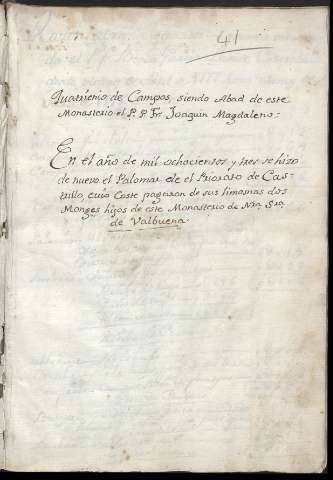 41
Quatrienio de Campos, siendo Abad de este
Monasterio el P. P. Fr. Joaquin Magdaleno:
En el año de mil ochocientos y tres se hizo
de nuevo el Palomar de el Priorato de Cas-
trillo, cuio Coste pagaron de sus limosnas dos
Monges hijos de este Monasterio de Nra Sra
de Valbuena